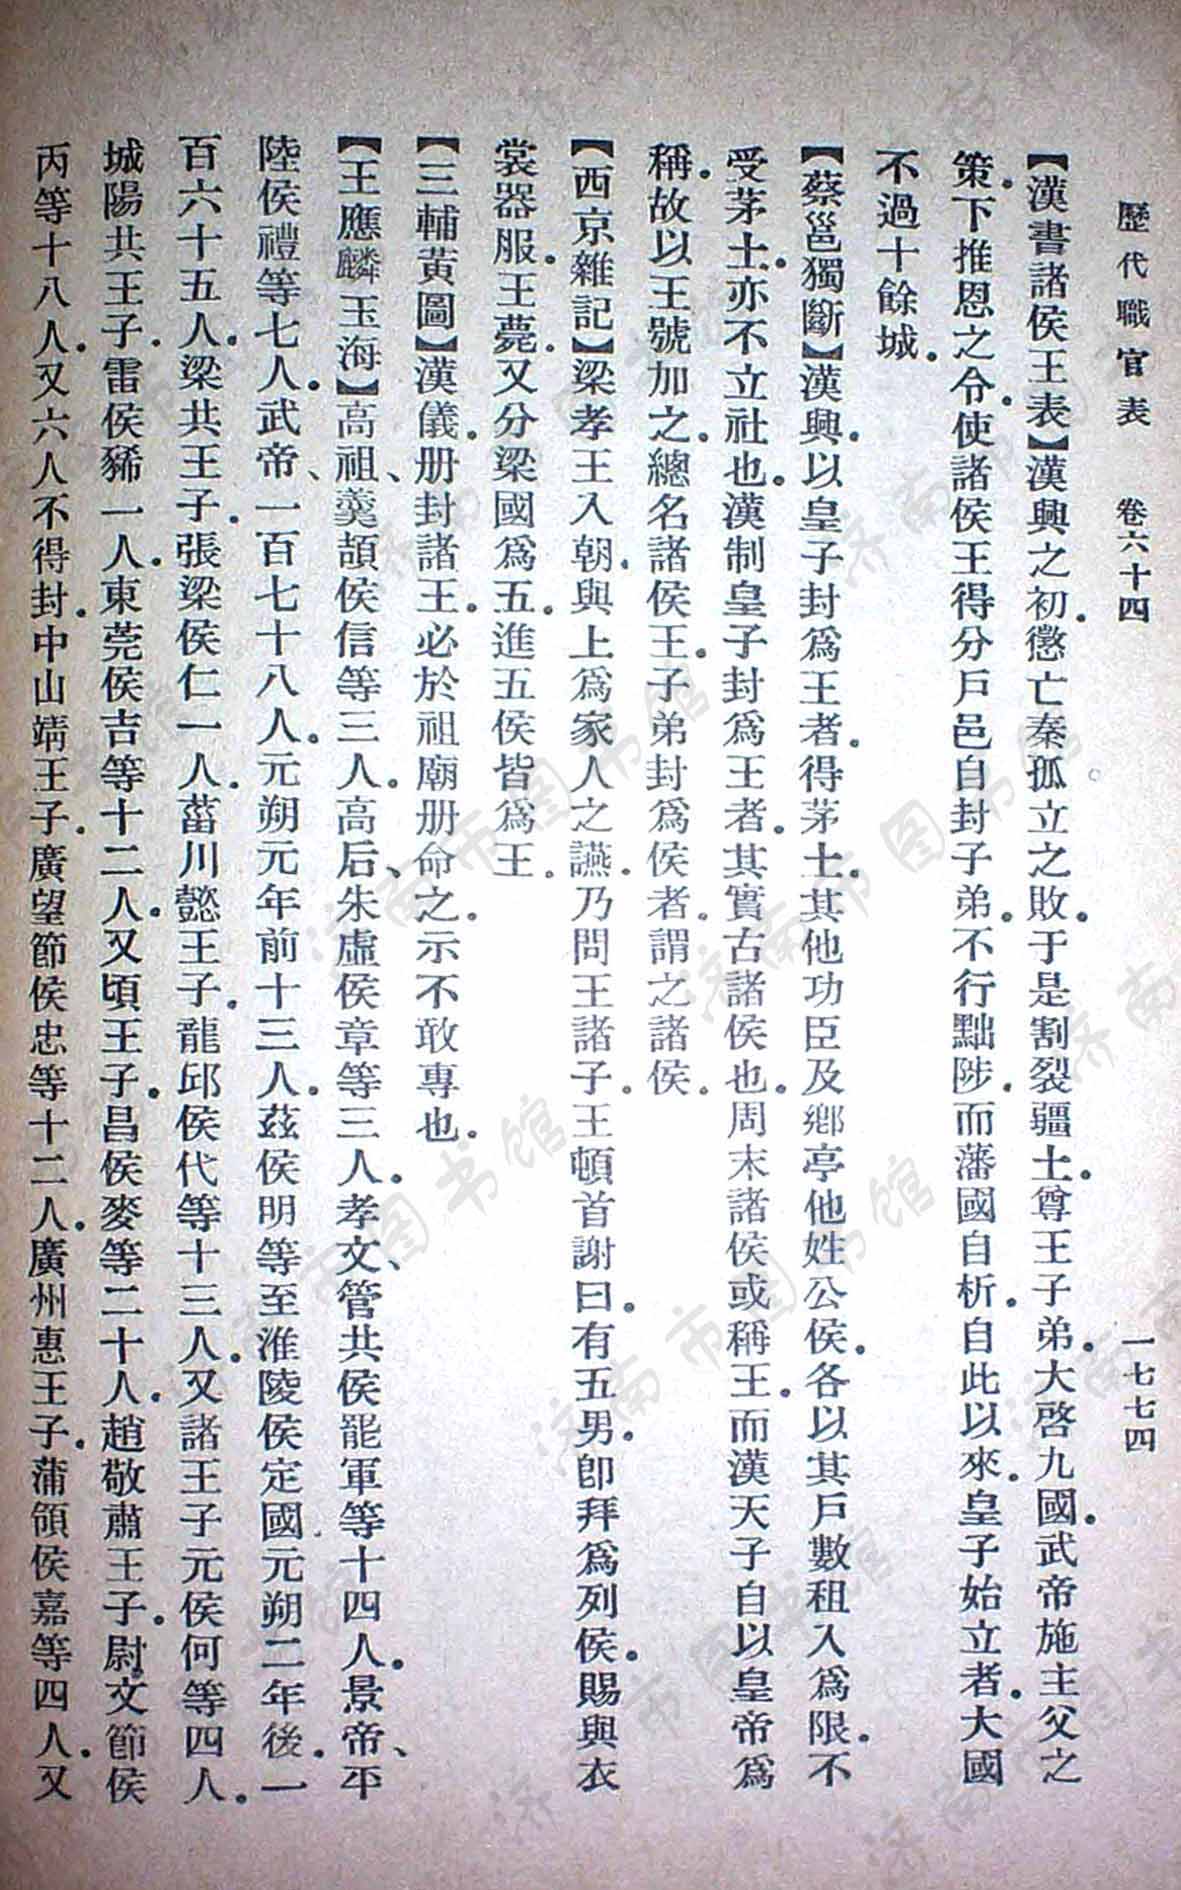 歷代職官表　卷六十四　一七七四
【漢書諸侯王表】漢興之初。懲亡秦孤立之敗。于是割裂疆土。尊王子弟。大啓九國。武帝施主父之
策。下推恩之令。使諸侯王得分戶邑自封子弟。不行黜陟。而藩國自析。自此以來。皇子始立者。大國
不過十餘城。
【蔡邕獨斷】漢興。以皇子封爲王者。得茅土。其他功臣及鄉亭他姓公侯。各以其戶數租入爲限。不
受茅土。亦不立社也。漢制皇子封爲王者。其實古諸侯也。周末諸侯或稱王。而漢天子自以皇帝爲
稱。故以王號加之。總名諸侯王。子弟封爲侯者。謂之諸侯。
【西京雜記】梁孝王入朝。與上爲家人之讌。乃問王諸子。王頓首謝曰。有五男。卽拜爲列侯。賜與衣
裳器服。王薨。又分梁國爲五。進五侯皆爲王。
【三輔黃圖】漢儀。册封諸王。必於祖廟册命之。示不敢專也。
【王應麟玉海】高祖、羹頡侯信等三人。高后、朱虛侯章等三人。孝文、管共侯罷軍等十四人。景帝、平
陸侯禮等七人。武帝、一百七十八人。元朔元年前十三人。茲侯明等至淮陵侯定國。元朔二年後。一
百六十五人。梁共王子。張梁侯仁一人。菑川懿王子。龍邱侯代等十三人。又諸王子元侯何等四人。
城陽共王子。雷侯豨一人。東莞侯吉等十二人。又頃王子。昌侯麥等二十人。趙敬肅王子。尉文節侯
丙等十八人。又六人不得封。中山靖王子。廣望節侯忠等十二人。廣州惠王子。蒲領侯嘉等四人。又
济南市图书馆